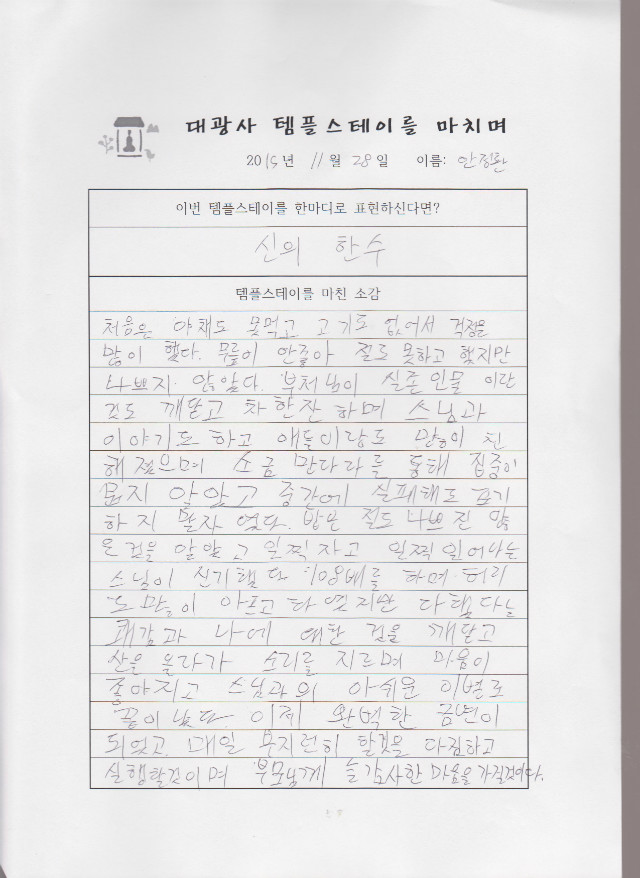 대광사 템플스테이를 마치며
2015년 11월 28일 이름: 안정환
이번 템플스테이를 한마디로 표현하신다면?
신의 한수
템플스테이를 마친 소감
처음은 야채도 못먹고 고기도 없어서 걱정을
많이 했다. 무릎이 안좋아 절도 못하고 했지만
나쁘지 않았다. 부처님이 실존인물 이란
것도 깨닫고 차한잔 하며 스님과
이야기도 하고 애들이랑도 많이 친
해졌으며 소금 만다라를 통해 집중이
뭔지 알았고 중간에 실패해도 포기
하지 말자 였다. 밥은 절도 나쁘진 않
은 것을 알았고 일찍자고 일찍일어나는
스님이 신기했다 108배를 하며 허리
도 많이 아프고 하였지만 다했다는
쾌감과 나에 대한 걸을 깨닫고
산을 올라가 소리를 지르며 마음이
좋아지고 스님과의 아쉬운 이별로
끝이 났다. 이제 완벽한 금연이
되었고. 매일 부지런히 할것을 다짐하고
실행할것이며 부모님께 늘 감사한 마음을 가질것이다.